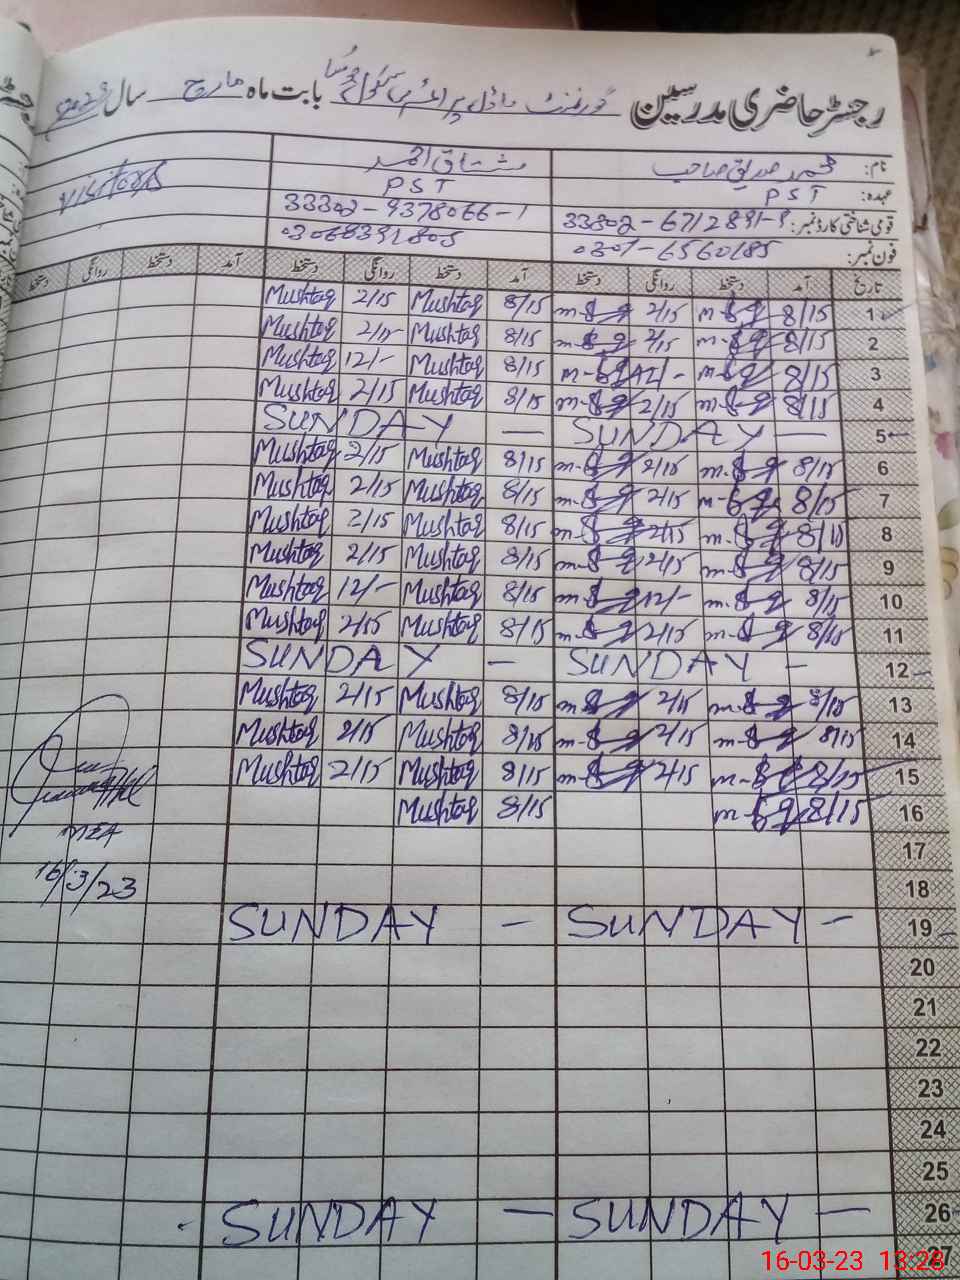 رجسٹر حاضری مدرسین گورنمنٹ ماڈل پرائمری سکول بابت ماہ مارچ سال 2023
نام: محمد صدیق صاحب مشتاق احمد Visitors
عہدہ: PST PST
قومی شناختی کارڈ نمبر: 33302-6712891-9 33302-9378066-1
فون نمبر: 0301-6560185 03068391805
تاریخ آمد دستخط روانگی دستخط آمد دستخط روانگی دستخط آمد دستخط روانگی دستخط
Mushtaq 2/15 Mushtaq 8/15 2/15 8/15 1
Mushtaq 2/15 Mushtaq 8/15 2/15 8/15 2
Mushtaq 12/- Mushtaq 8/15 12/- 8/15 3
Mushtaq 2/15 Mushtaq 8/15 2/15 8/15 4
SUNDAY — SUNDAY — 5
Mushtaq 2/15 Mushtaq 8/15 2/15 8/15 6
Mushtaq 2/15 Mushtaq 8/15 2/15 8/15 7
Mushtaq 2/15 Mushtaq 8/15 2/15 8/15 8
Mushtaq 2/15 Mushtaq 8/15 2/15 8/15 9
Mushtaq 12/- Mushtaq 8/15 12/- 8/15 10
Mushtaq 2/15 Mushtaq 8/15 2/15 8/15 11
SUNDAY - SUNDAY - 12
Mushtaq 2/15 Mushtaq 8/15 2/15 8/15 13
Mushtaq 2/15 Mushtaq 8/15 2/15 8/15 14
Mushtaq 2/15 Mushtaq 8/15 2/15 8/15 15
Mushtaq 8/15 8/15 16
MEA
17
16/3/23
18
SUNDAY - SUNDAY - 19
20
21
22
23
24
25
SUNDAY — SUNDAY — 26
27
16-03-23 13:28